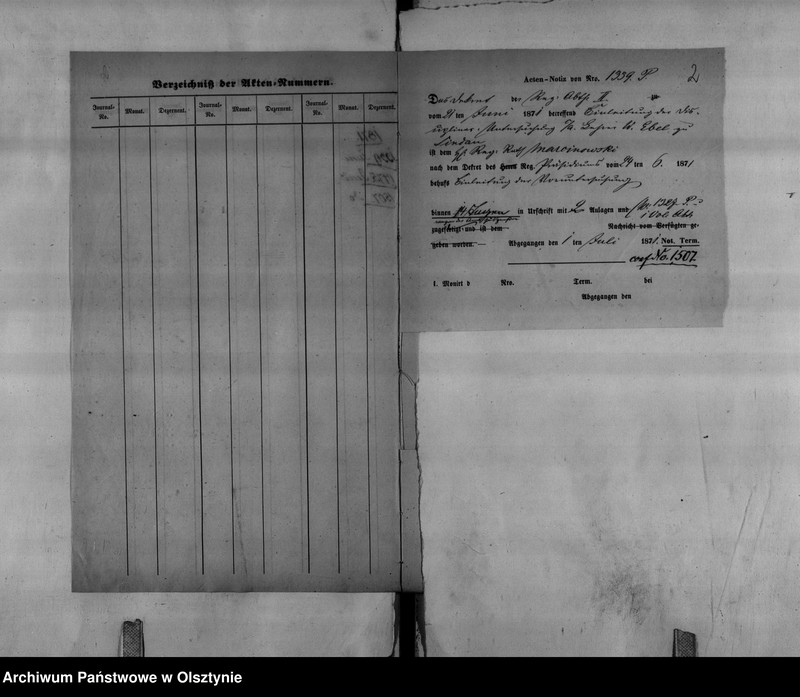 Verzeichniß der Akten-Nummern.
Journal-No. Monat. Dezernent. Journal-No. Monat. Dezernent. Journal-No. Monat. Dezernent.
2
Acten-Notiz von Nro. 1339. P.
Das Dekret der Reg. Abth. II
vom 21 ten Juni 1871 betreffend Einleitung der Dis-
ciplinar-Untersuchung Ebel zu
Lindau
ist dem Reg. Rath Marcinowski
nach dem Dekret des Herrn Reg. Präsidiums vom 24 ten 6. 1871
behufs Einleitung der Voruntersuchung
binnen in Urschrift mit 2 Anlagen und No. 1329. P.
1 Vol. Abth.
zugefertigt und ist dem Nachricht vom Verfügten ge-
geben worden. — Abgegangen den 1 ten Juli 1871. Not. Term.
conf No. 1507.
1. Monirt d Nro. Term. bei
Abgegangen den
Archiwum Państwowe w Olsztynie